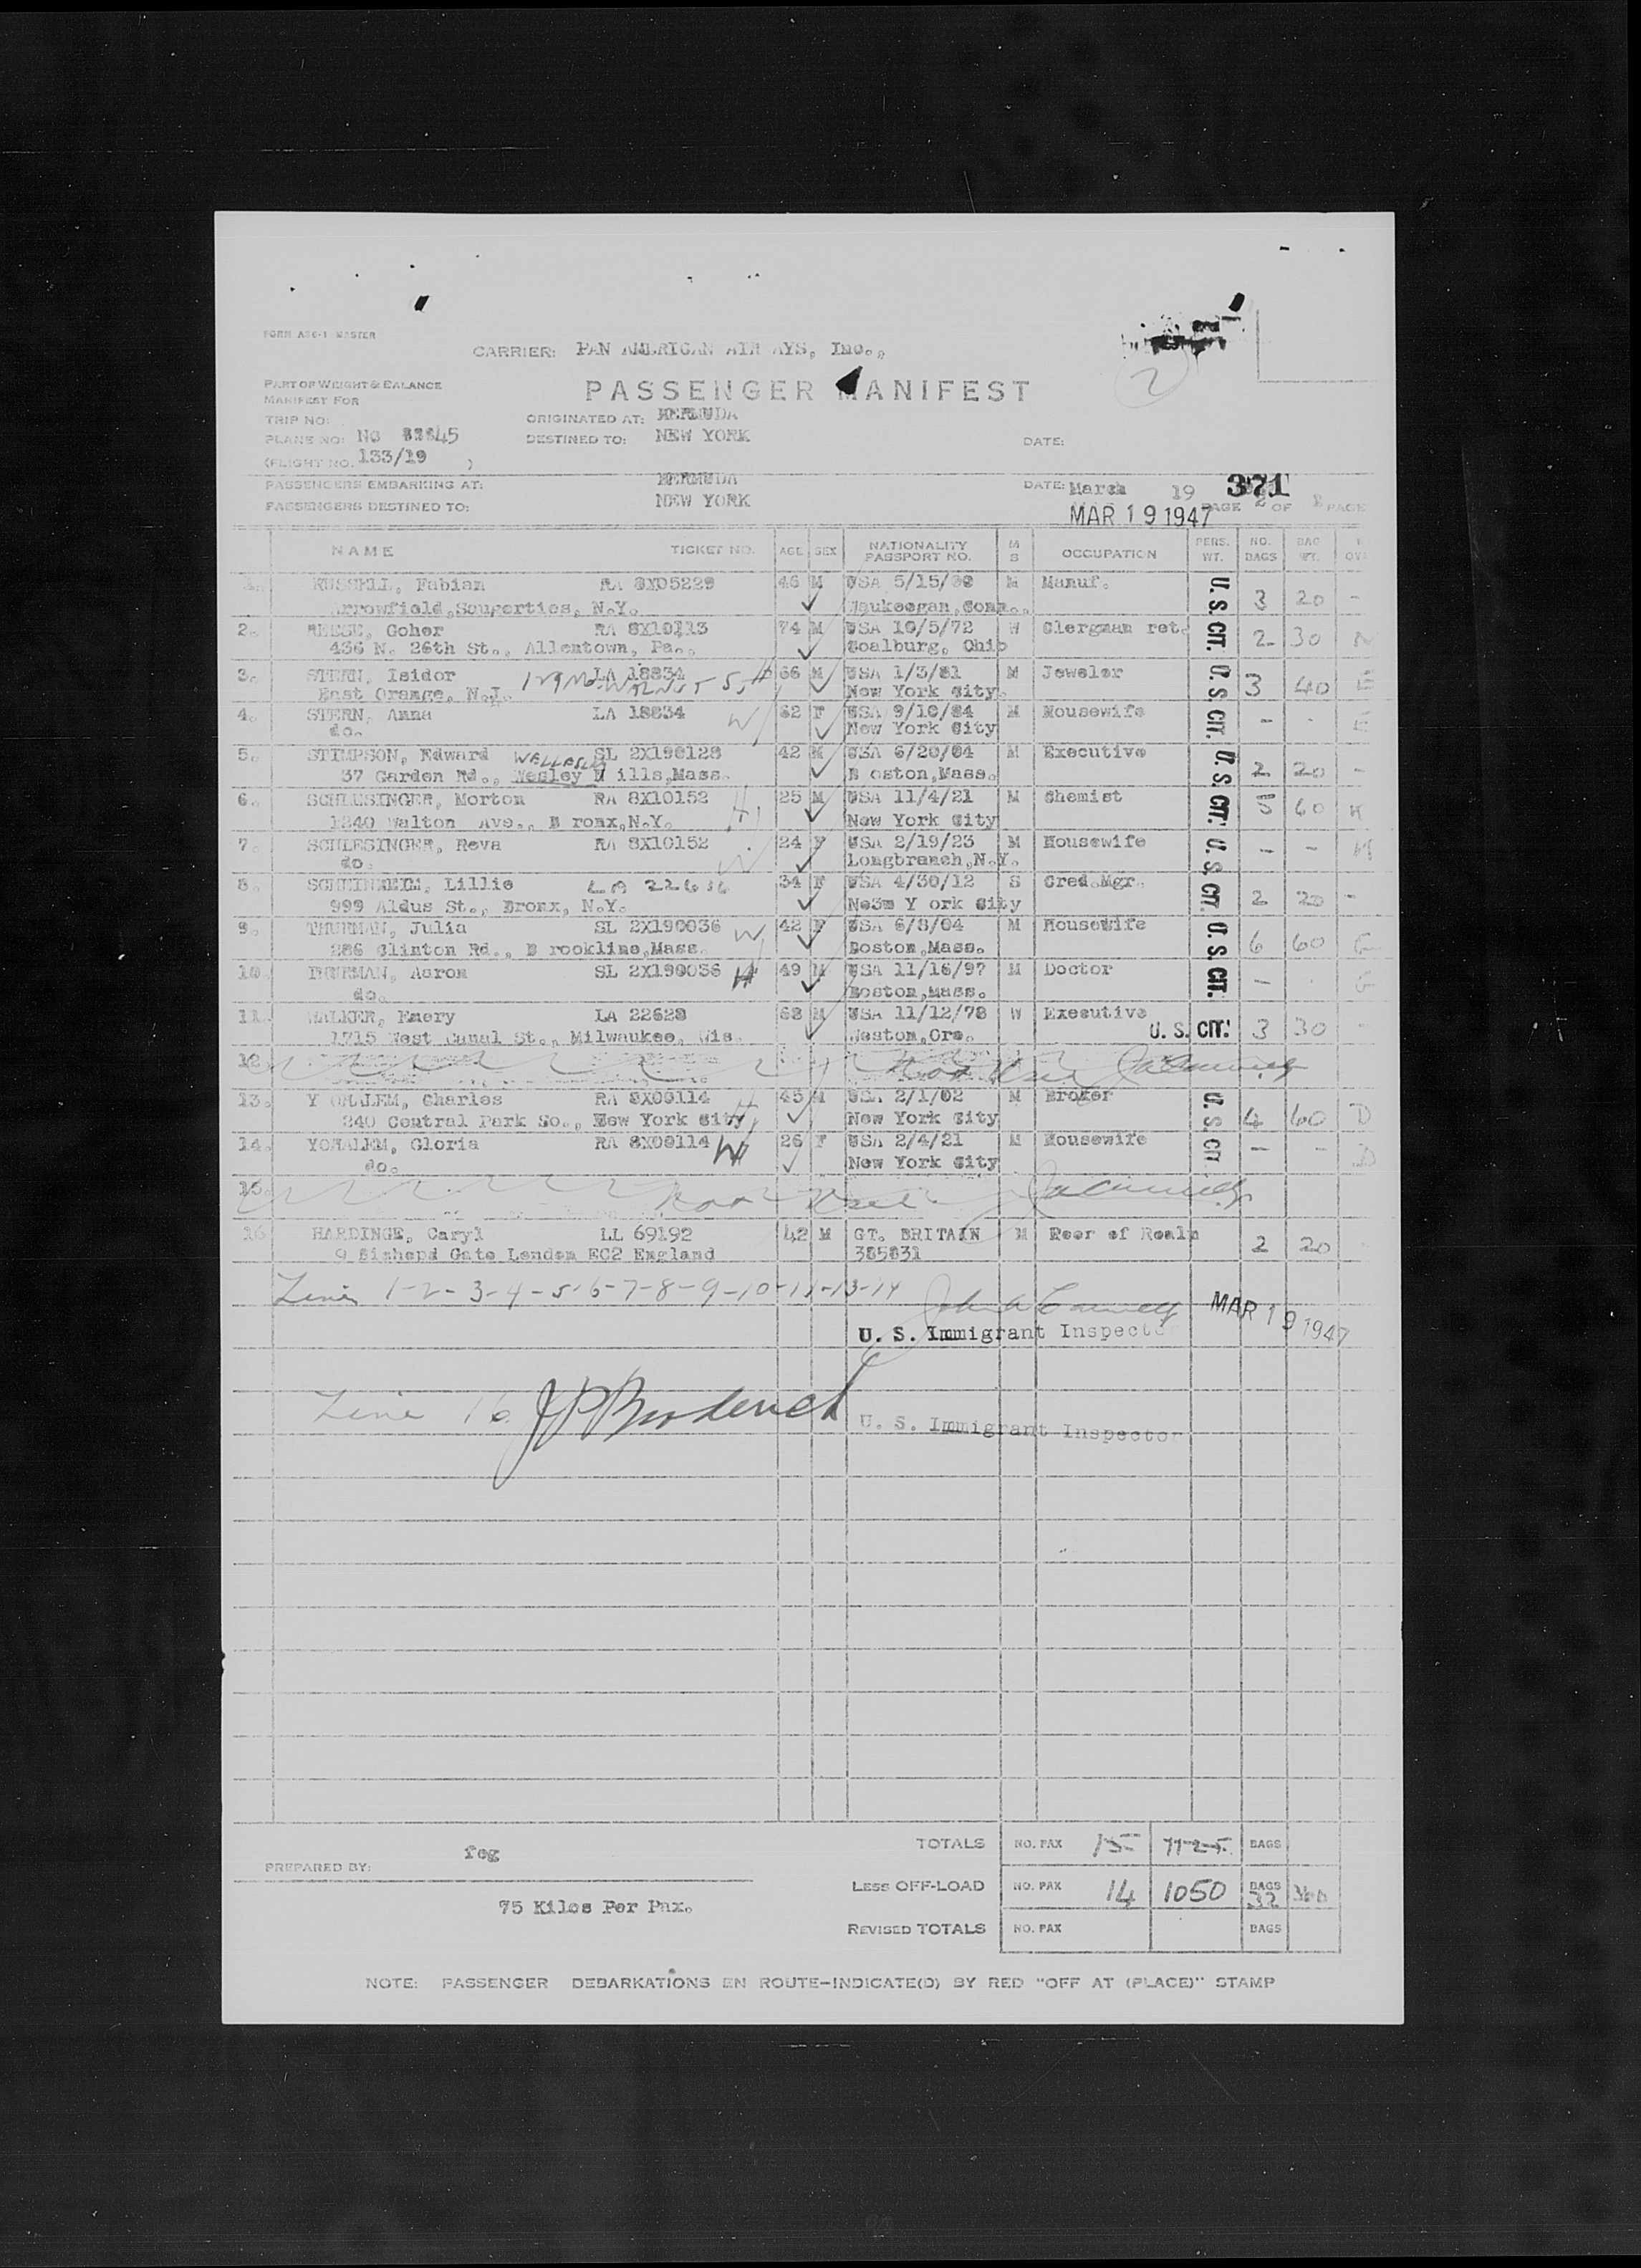 FORM A86-1 MASTER
CARRIER: PAN AMERICAN AIR AYS, Inc.,
PART OF WEIGHT & BALANCE
MANIFEST FOR
PASSENGER MANIFEST
2
TRIP NO:
ORIGINATED AT: BERMUDA
PLANE NO: NC 88845
DESTINED TO: NEW YORK
DATE:
(FLIGHT NO. 133/19 )
PASSENGERS EMBARKING AT: BERMUDA
DATE: March 19 371
PASSENGERS DESTINED TO: NEW YORK
MAR 19 1947 PAGE 2 OF PAGE
NAME TICKET NO. AGE SEX NATIONALITY PASSPORT NO. M S OCCUPATION PERS. WT. NO. BAGS BAG WT.
RUSSELL, Fabian RA 8X05229 46 M USA 5/15/ M Manuf. U.S. CIT. 3 20 -
Arrowfield, Saugerties, N.Y. Waukeegan, Conn.
2. REESE, Goher RA 8X10113 74 M USA 10/5/72 W Clergman ret. 2 30 N
436 N. 26th St., Allentown, Pa., Coalburg, Ohio
3. STERN, Isidor LA 18834 66 M USA 1/3/81 M Jeweler U.S. CIT. 3 40 E
East Orange, N.J. 129 No. WALNUT ST New York City.
4. STERN, Anna LA 18834 W 62 F USA 9/10/84 M Housewife - - E
do. New York City
5. STIMPSON, Edward WELLESLEY SL 2X190128 42 M USA 6/20/04 M Executive U.S. CIT. 2 20 -
37 Garden Rd., Wesley H ills, Mass. B oston, Mass.
6. SCHLESINGER, Morton RA 8X10152 H 25 M USA 11/4/21 M Chemist 5 60 H
1240 Walton Ave., B ronx, N.Y. New York City
7. SCHLESINGER, Reva RA 8X10152 W 24 F USA 2/19/23 M Housewife U.S. CIT. - - H
do. Longbranch, N.Y.
8. SCHEINHEIM, Lillie LA 22616 34 F USA 4/30/12 S Cred. Mgr. 2 20 -
999 Aldus St., Bronx, N.Y. Ne3w Y ork City
9. THURMAN, Julia SL 2X190036 W 42 F USA 6/8/04 M Housewife U.S. CIT. 6 60 G
286 Clinton Rd., B rookline, Mass. Boston, Mass.
10. THURMAN, Aaron SL 2X190036 H 49 M USA 11/16/97 M Doctor - - G
do. Boston, Mass.
11. WALKER, Emery LA 22628 68 M USA 11/12/78 W Executive 3 30 -
1715 West Canal St., Milwaukee, Wis. Weston, Ore. U. S. CIT.
12. Not Used
13. Y OHALEM, Charles RA 8X09114 H 45 M USA 2/1/02 M Broker U.S. CIT. 4 60 D
240 Central Park So., New York City New York City
14. YOHALEM, Gloria RA 8X09114 W 26 F USA 2/4/21 M Housewife - - D
do. New York City
15. Not Used
16 HARDINGE, Caryl LL 69192 42 M GT. BRITAIN M Peer of Realm 2 20
9 Bishops Gate London EC2 England 385831
Lines 1-2-3-4-5-6-7-8-9-10-11-13-14
MAR 19 1947
U. S. Immigrant Inspector
Line 16 JP Broderick
U. S. Immigrant Inspector
TOTALS NO. PAX 15 1125 BAGS
PREPARED BY: feg
LESS OFF-LOAD NO. PAX 14 1050 BAGS 32 360
75 Kilos Per Pax.
REVISED TOTALS NO. PAX BAGS
NOTE: PASSENGER DEBARKATIONS EN ROUTE-INDICATE(D) BY RED "OFF AT (PLACE)" STAMP